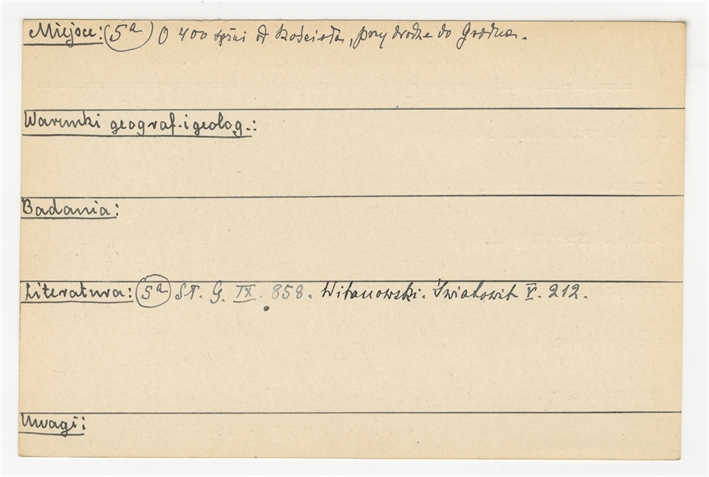 Miejsce: (5a) O 400 sążni od Kościoła, przy drodze do Grodna.
Warunki geograf. i geolog.:
Badania:
Literatura: (5a) Sł. G. IX. 858. Witanowski. Światowit V. 212.
Uwagi: